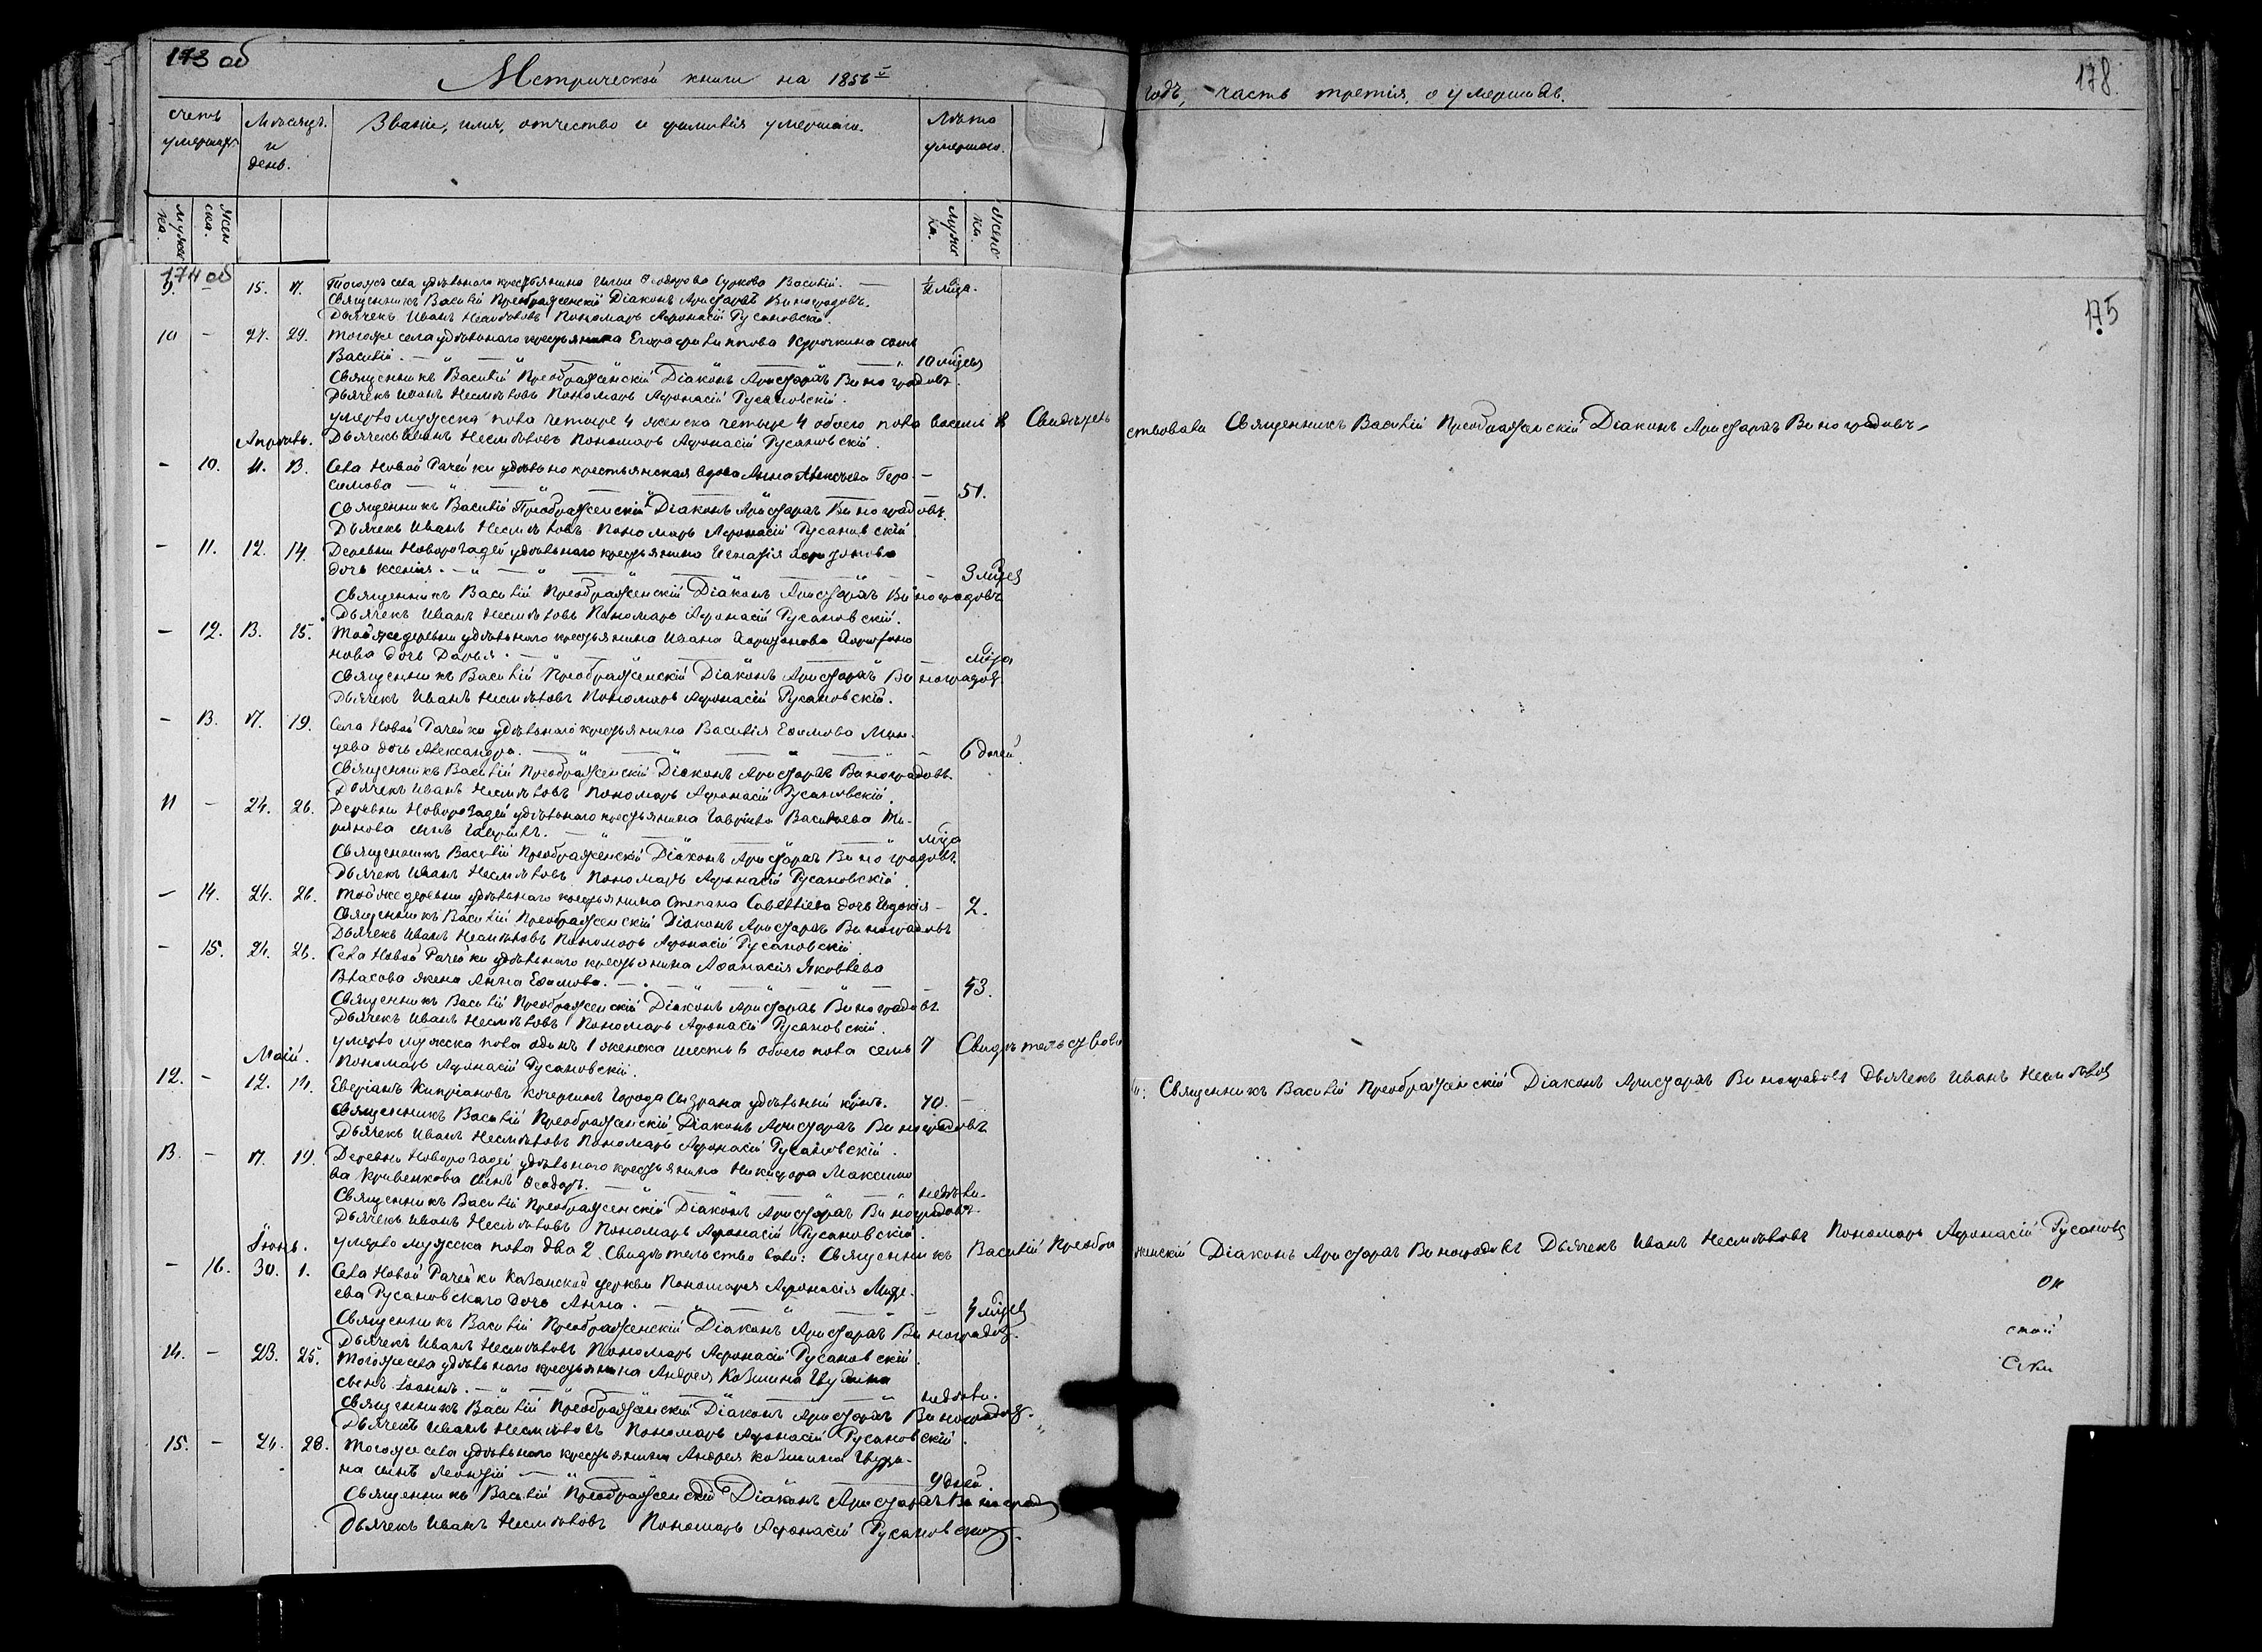 173 об
Метрической книги на 1856й
годъ, часть третія, о умершихъ.
178.
счетъ умершихъ
Мѣсяцъ и день.
Званіе, имя, отчество и фамилія умершаго.
Лѣта умершаго.
мужеска.
женска.
174 об
175
9. - 15. 17. Тогожъ села удѣльнаго крестьянина Ильи Ѳедорова Суркова Василій. — ½ мѣца.
Священникъ Василій Преображенскій Діаконъ Аристархъ Виноградовъ.
Дьячекъ Иванъ Несмѣловъ Пономарь Афонасій Русановскій.
10 - 27. 29. Тогоже села удѣльнаго крестьянина Егора Филиппова Курочкина сынъ
Василій. — 10 мѣцевъ
Священникъ Василій Преображенскій Діаконъ Аристархъ Виноградовъ.
Дьячекъ Иванъ Несмѣловъ Пономарь Афонасій Русановскій.
умерло мужска пола четыре 4 женска четыре 4 обоего пола восемь 8 Свидѣтель
ствовали Священникъ Василій Преображенскій Діаконъ Аристархъ Виноградовъ
Апрѣль. Дьячекъ Иванъ Несмѣловъ Пономарь Афонасій Русановскій.
- 10. 11. 13. Села Новой Рачейки удѣльно крестьянская вдова Анна Алексѣева Гера-
симова — 51.
Священникъ Василій Преображенскій Діаконъ Аристархъ Виноградовъ.
Дьячекъ Иванъ Несмѣловъ Пономарь Афонасій Русановскій
- 11. 12. 14. Деревни удѣльнаго крестьянина Игнатія Харитонова
дочь Ксенія. — 3 мѣцев
Священникъ Василій Преображенскій Діаконъ Аристархъ Виноградовъ
Дьячекъ Иванъ Несмѣловъ Пономарь Афонасій Русановскій.
- 12. 13. 15. Тойже деревни удѣльнаго крестьянина Ивана Харитонова
дочь Дарья. — мѣца
Священникъ Василій Преображенскій Діаконъ Аристархъ Виноградов
Дьячекъ Иванъ Несмѣловъ Пономарь Афонасій Русановскій.
- 13. 17. 19. Села Новой Рачейки удѣльнаго крестьянина Василія Ефимова
дочь Александра. — 6 дней.
Священникъ Василій Преображенскій Діаконъ Аристархъ Виноградовъ.
Дьячекъ Иванъ Несмѣловъ Пономарь Афонасій Русановскій.
11 - 24. 26. Деревни удѣльнаго крестьянина Гаврила Васильева
сынъ Гаврилъ. — мѣца
Священникъ Василій Преображенскій Діаконъ Аристархъ Виноградовъ.
Дьячекъ Иванъ Несмѣловъ Пономарь Афонасій Русановскій.
- 14. 24. 26. Тойже деревни удѣльнаго крестьянина Степана Савельева дочь Евдокія — 2.
Священникъ Василій Преображенскій Діаконъ Аристархъ Виноградовъ
Дьячекъ Иванъ Несмѣловъ Пономарь Афонасій Русановскій
- 15. 24. 26. Села Новой Рачейки удѣльнаго крестьянина Афанасія Яковлева
Власова жена Анна Ефимова. — 43.
Священникъ Василій Преображенскій Діаконъ Аристархъ Виноградовъ
Дьячекъ Иванъ Несмѣловъ Пономарь Афонасій Русановскій.
умерло мужска пола одинъ 1 женска шесть 6 обоего пола семь 7 Свидѣтельствова
ли: Священникъ Василій Преображенскій Діаконъ Аристархъ Виноградовъ Дьячекъ Иванъ Несмѣлов
Маій. Пономарь Афонасій Русановскій.
12. - 12. 14. Кипріановъ Кочергинъ Города Сызрана удѣльный крнъ. 70. —
Священникъ Василій Преображенскій Діаконъ Аристархъ Виноградовъ
Дьячекъ Иванъ Несмѣловъ Пономарь Афонасій Русановскій.
13. - 17. 19. Деревни удѣльнаго крестьянина Никифора Максимо
ва Кривенкова сынъ Ѳеодоръ. — недѣли.
Священникъ Василій Преображенскій Діаконъ Аристархъ Виноградовъ.
Дьячекъ Иванъ Несмѣловъ Пономарь Афонасій Русановскій.
Іюнь. умерло мужска пола два 2. Свидѣтельствовали: Священникъ Василій Преобра
женскій Діаконъ Аристархъ Виноградовъ Дьячекъ Иванъ Несмѣловъ Пономарь Афонасій Русановс
- 16. 30. 1. Села Новой Рачейки Казанской церкви Пономаря Афонасія
Русановскаго дочь Анна. — 4 мѣцев
Священникъ Василій Преображенскій Діаконъ Аристархъ Виноградов.
Дьячекъ Иванъ Несмѣловъ Пономарь Афонасій Русановскій.
14. - 23. 25. Тогоже села удѣльнаго крестьянина Андрея Козьмина
сынъ Іоаннъ. — недѣли.
Священникъ Василій Преображенскій Діаконъ Аристархъ Виноградов.
Дьячекъ Иванъ Несмѣловъ Пономарь Афонасій Русановскій.
15. - 26. 28. Тогоже села удѣльнаго крестьянина Андрея Козьмина
на сынъ Леонтій — 9 дней.
Священникъ Василій Преображенскій Діаконъ Аристархъ Виноградов
Дьячекъ Иванъ Несмѣловъ Пономарь Афонасій Русановскій.